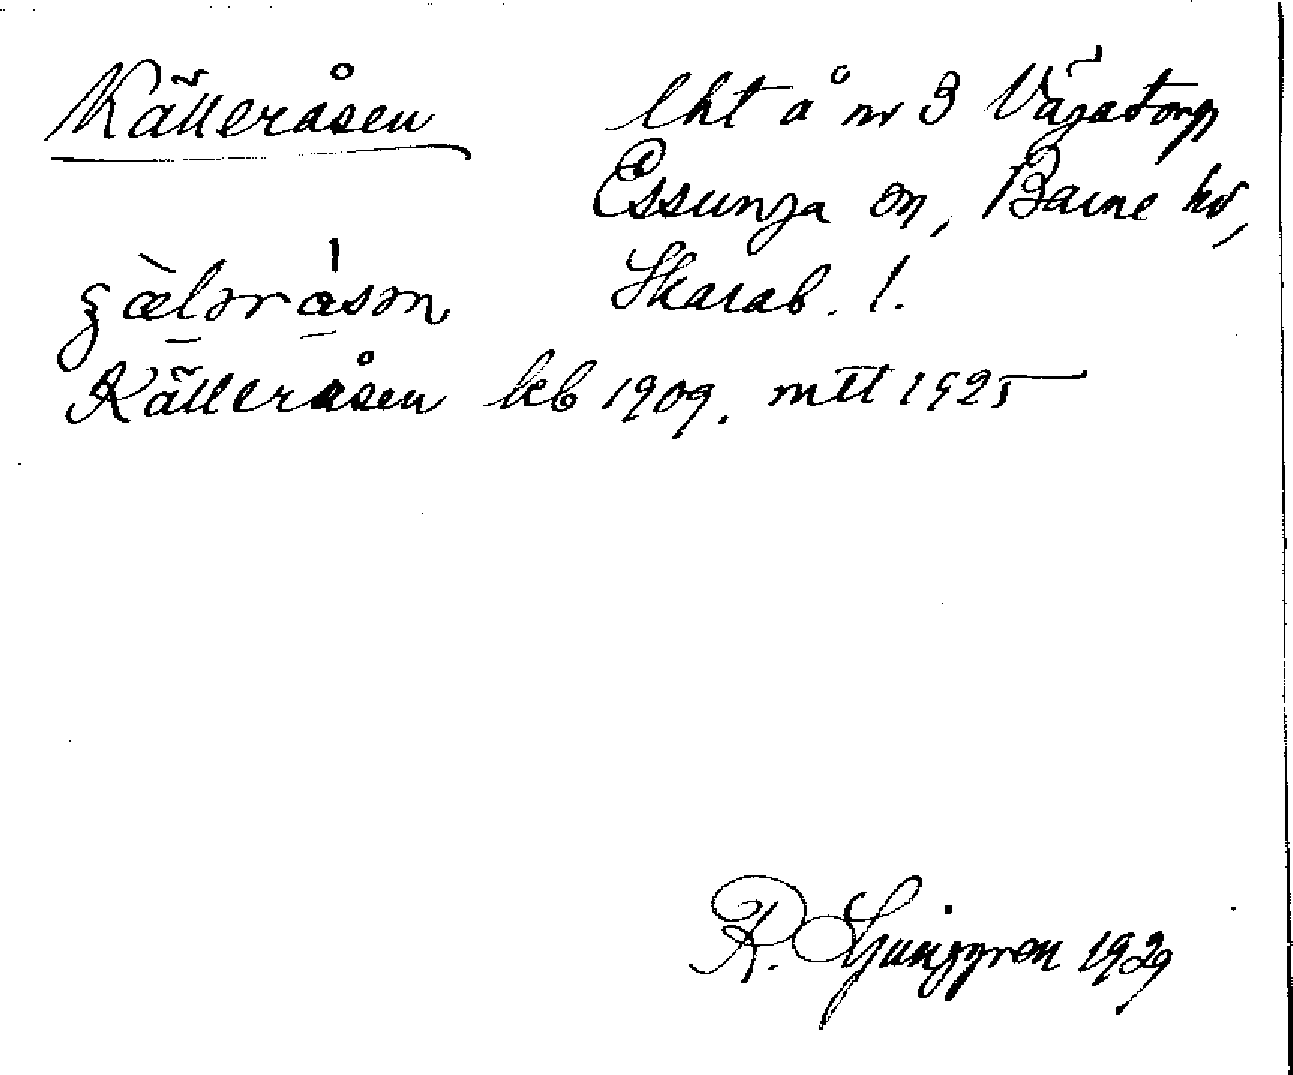 Källeråsen lht å nr 3 Vägatorp
Essunga sn, Barne hd,
Skarab. l.
Källeråsen kb 1909. mtl 1925
R. Ljunggren 1929